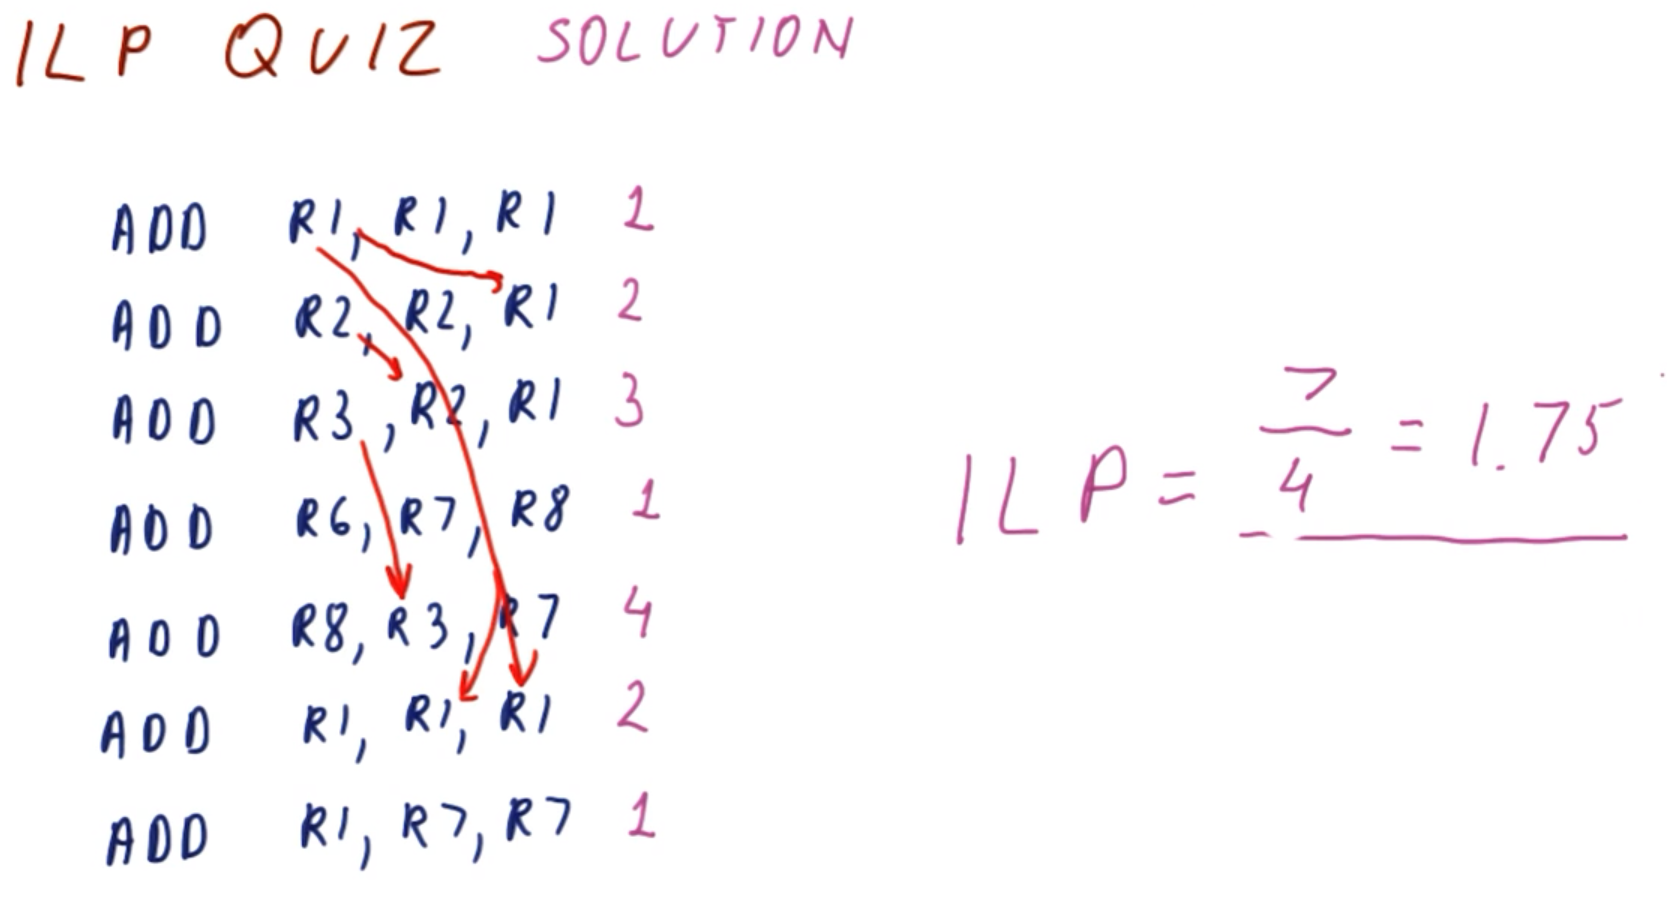 ILP QUIZ SOLUTION
ADD R1, R1, R1 1
ADD R2, R2, R1 2
ADD R3, R2, R1 3
ADD R6, R7, R8 1
ADD R8, R3, R7 4
ADD R1, R1, R1 2
ADD R1, R7, R7 1
ILP = 7/4 = 1.75